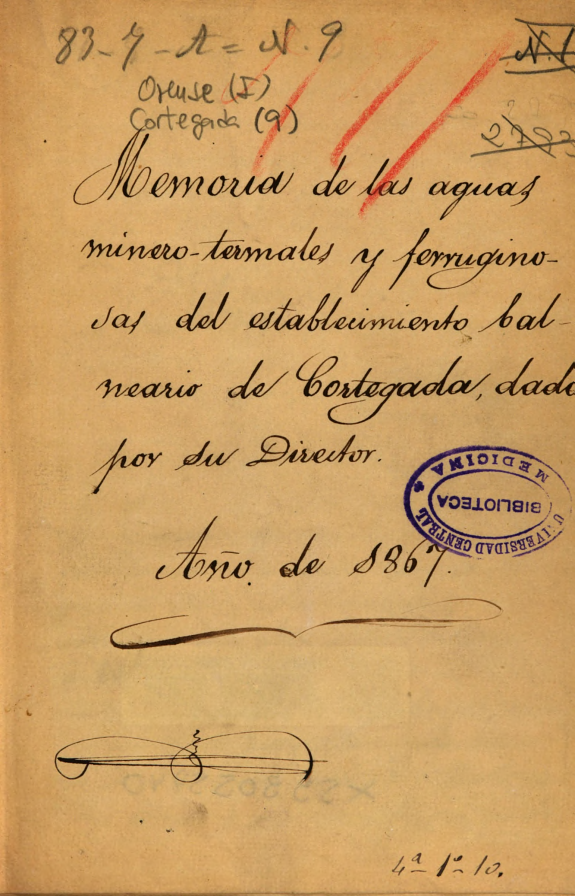 83-7-A = N. 9
N. 1
Orense (I)
Cortegada (9)
2783
Memoria de las aguas
minero-termales y ferrugino-
sas del establecimiento bal-
neario de Cortegada, dada
por su Director.
UNIVERSIDAD CENTRAL
BIBLIOTECA
MEDICINA
Año de 1867.
4ª-1º-10.